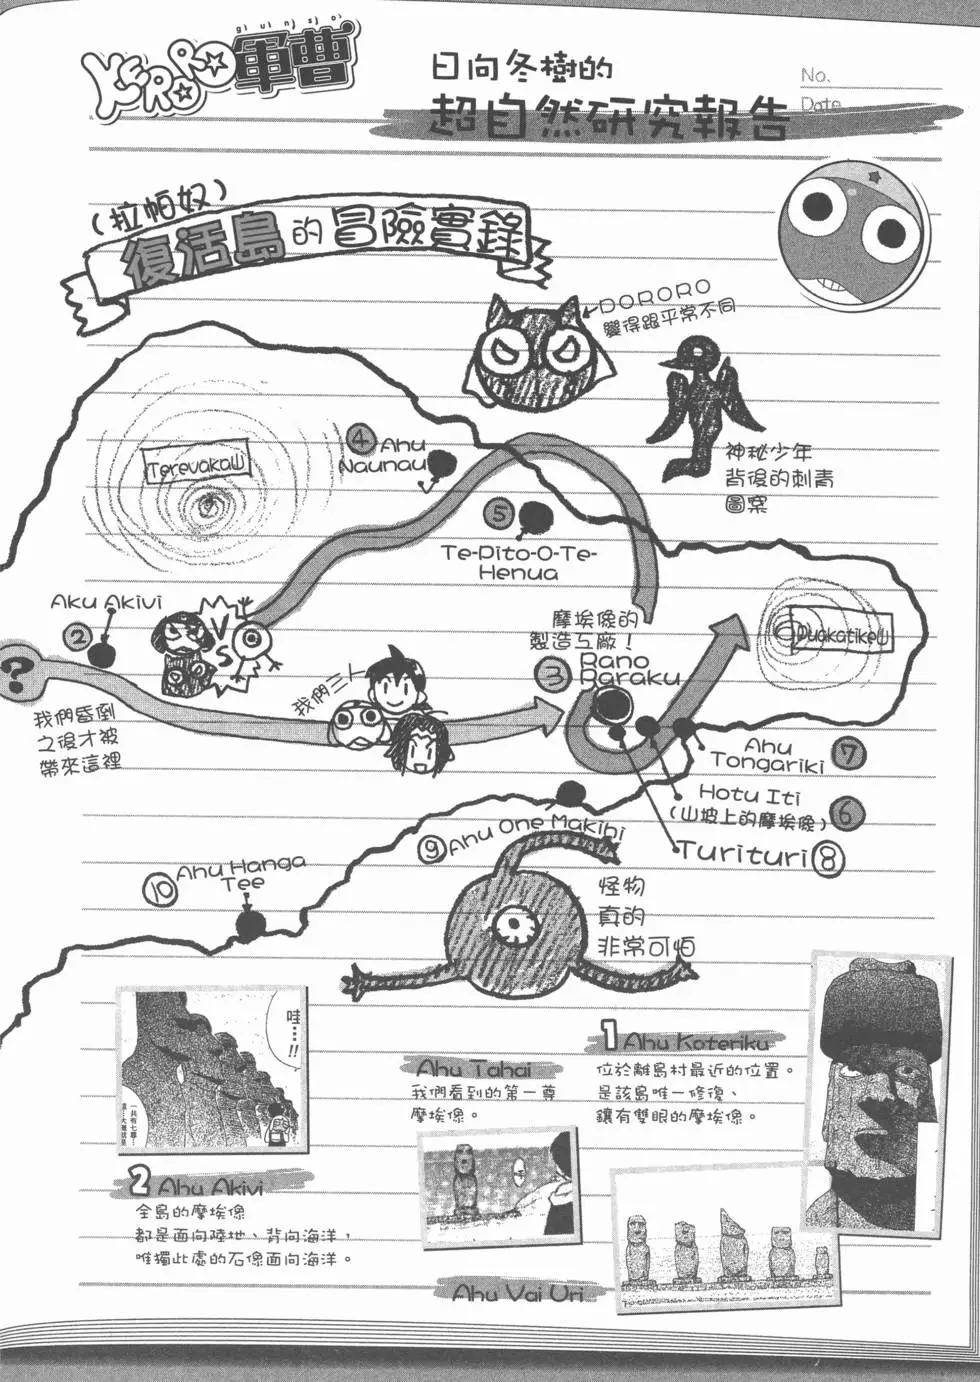 giunsoi
KERORO軍曹
日向冬樹的
超自然研究報告
No.
Date
(拉帕奴)
復活島的冒險實錄
DORORO
變得跟平常不同
神秘少年
背後的刺青
圖案
Terevaka山
④ Ahu
Naunau
⑤
Te-Pito-O-Te-
Henua
Aku Akivi
②
VS
?
我們昏倒
之後才被
帶來這裡
我們三人
摩埃像的
製造工廠!
③ Rano
Raraku
Puakatike山
Ahu
Tongariki ⑦
Hotu Iti
(山坡上的摩埃像) ⑥
Turituri ⑧
⑨ Ahu One Makihi
⑩ Ahu Hanga
Tee
怪物
真的
非常可怕
哇…!!
一共有七尊…
1 Ahu Koteriku
位於離島村最近的位置。
是該島唯一修復、
鑲有雙眼的摩埃像。
Ahu Tahai
我們看到的第一尊
摩埃像。
2 Ahu Akivi
全島的摩埃像
都是面向陸地、背向海洋,
唯獨此處的石像面向海洋。
Ahu Vai Uri